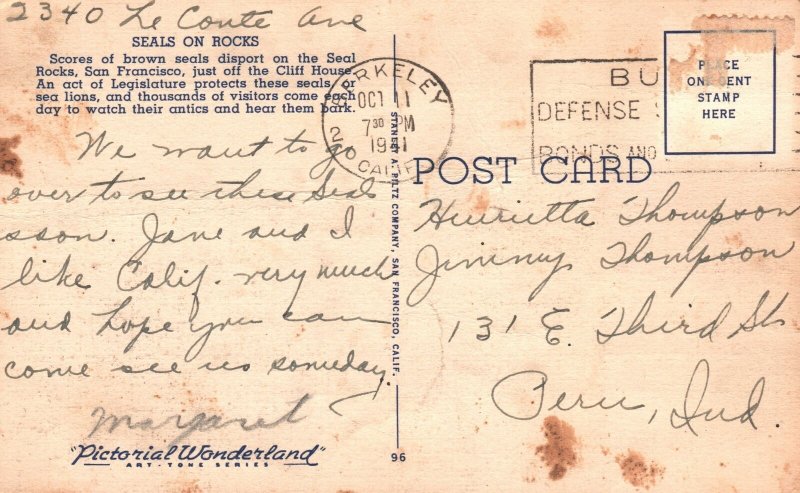 2340 Le Conte Ave
SEALS ON ROCKS
Scores of brown seals disport on the Seal
Rocks, San Francisco, just off the Cliff House.
An act of Legislature protects these seals, or
sea lions, and thousands of visitors come each
day to watch their antics and hear them bark.
We want to go
over to see these Seals
sson. Jane and I
like Calif. very much
and hope you can
come see us someday.
Margaret
"Pictorial Wonderland"
ART-TONE SERIES
BERKELEY
OCT 11
7 30 PM
1941
CALIF.
2
STANLEY A. PILTZ COMPANY, SAN FRANCISCO, CALIF.
96
BU
DEFENSE S
BONDS AND
PLACE
ONE CENT
STAMP
HERE
POST CARD
Henrietta Thompson
Jimmy Thompson
131 E. Third St.
Peru, Ind.